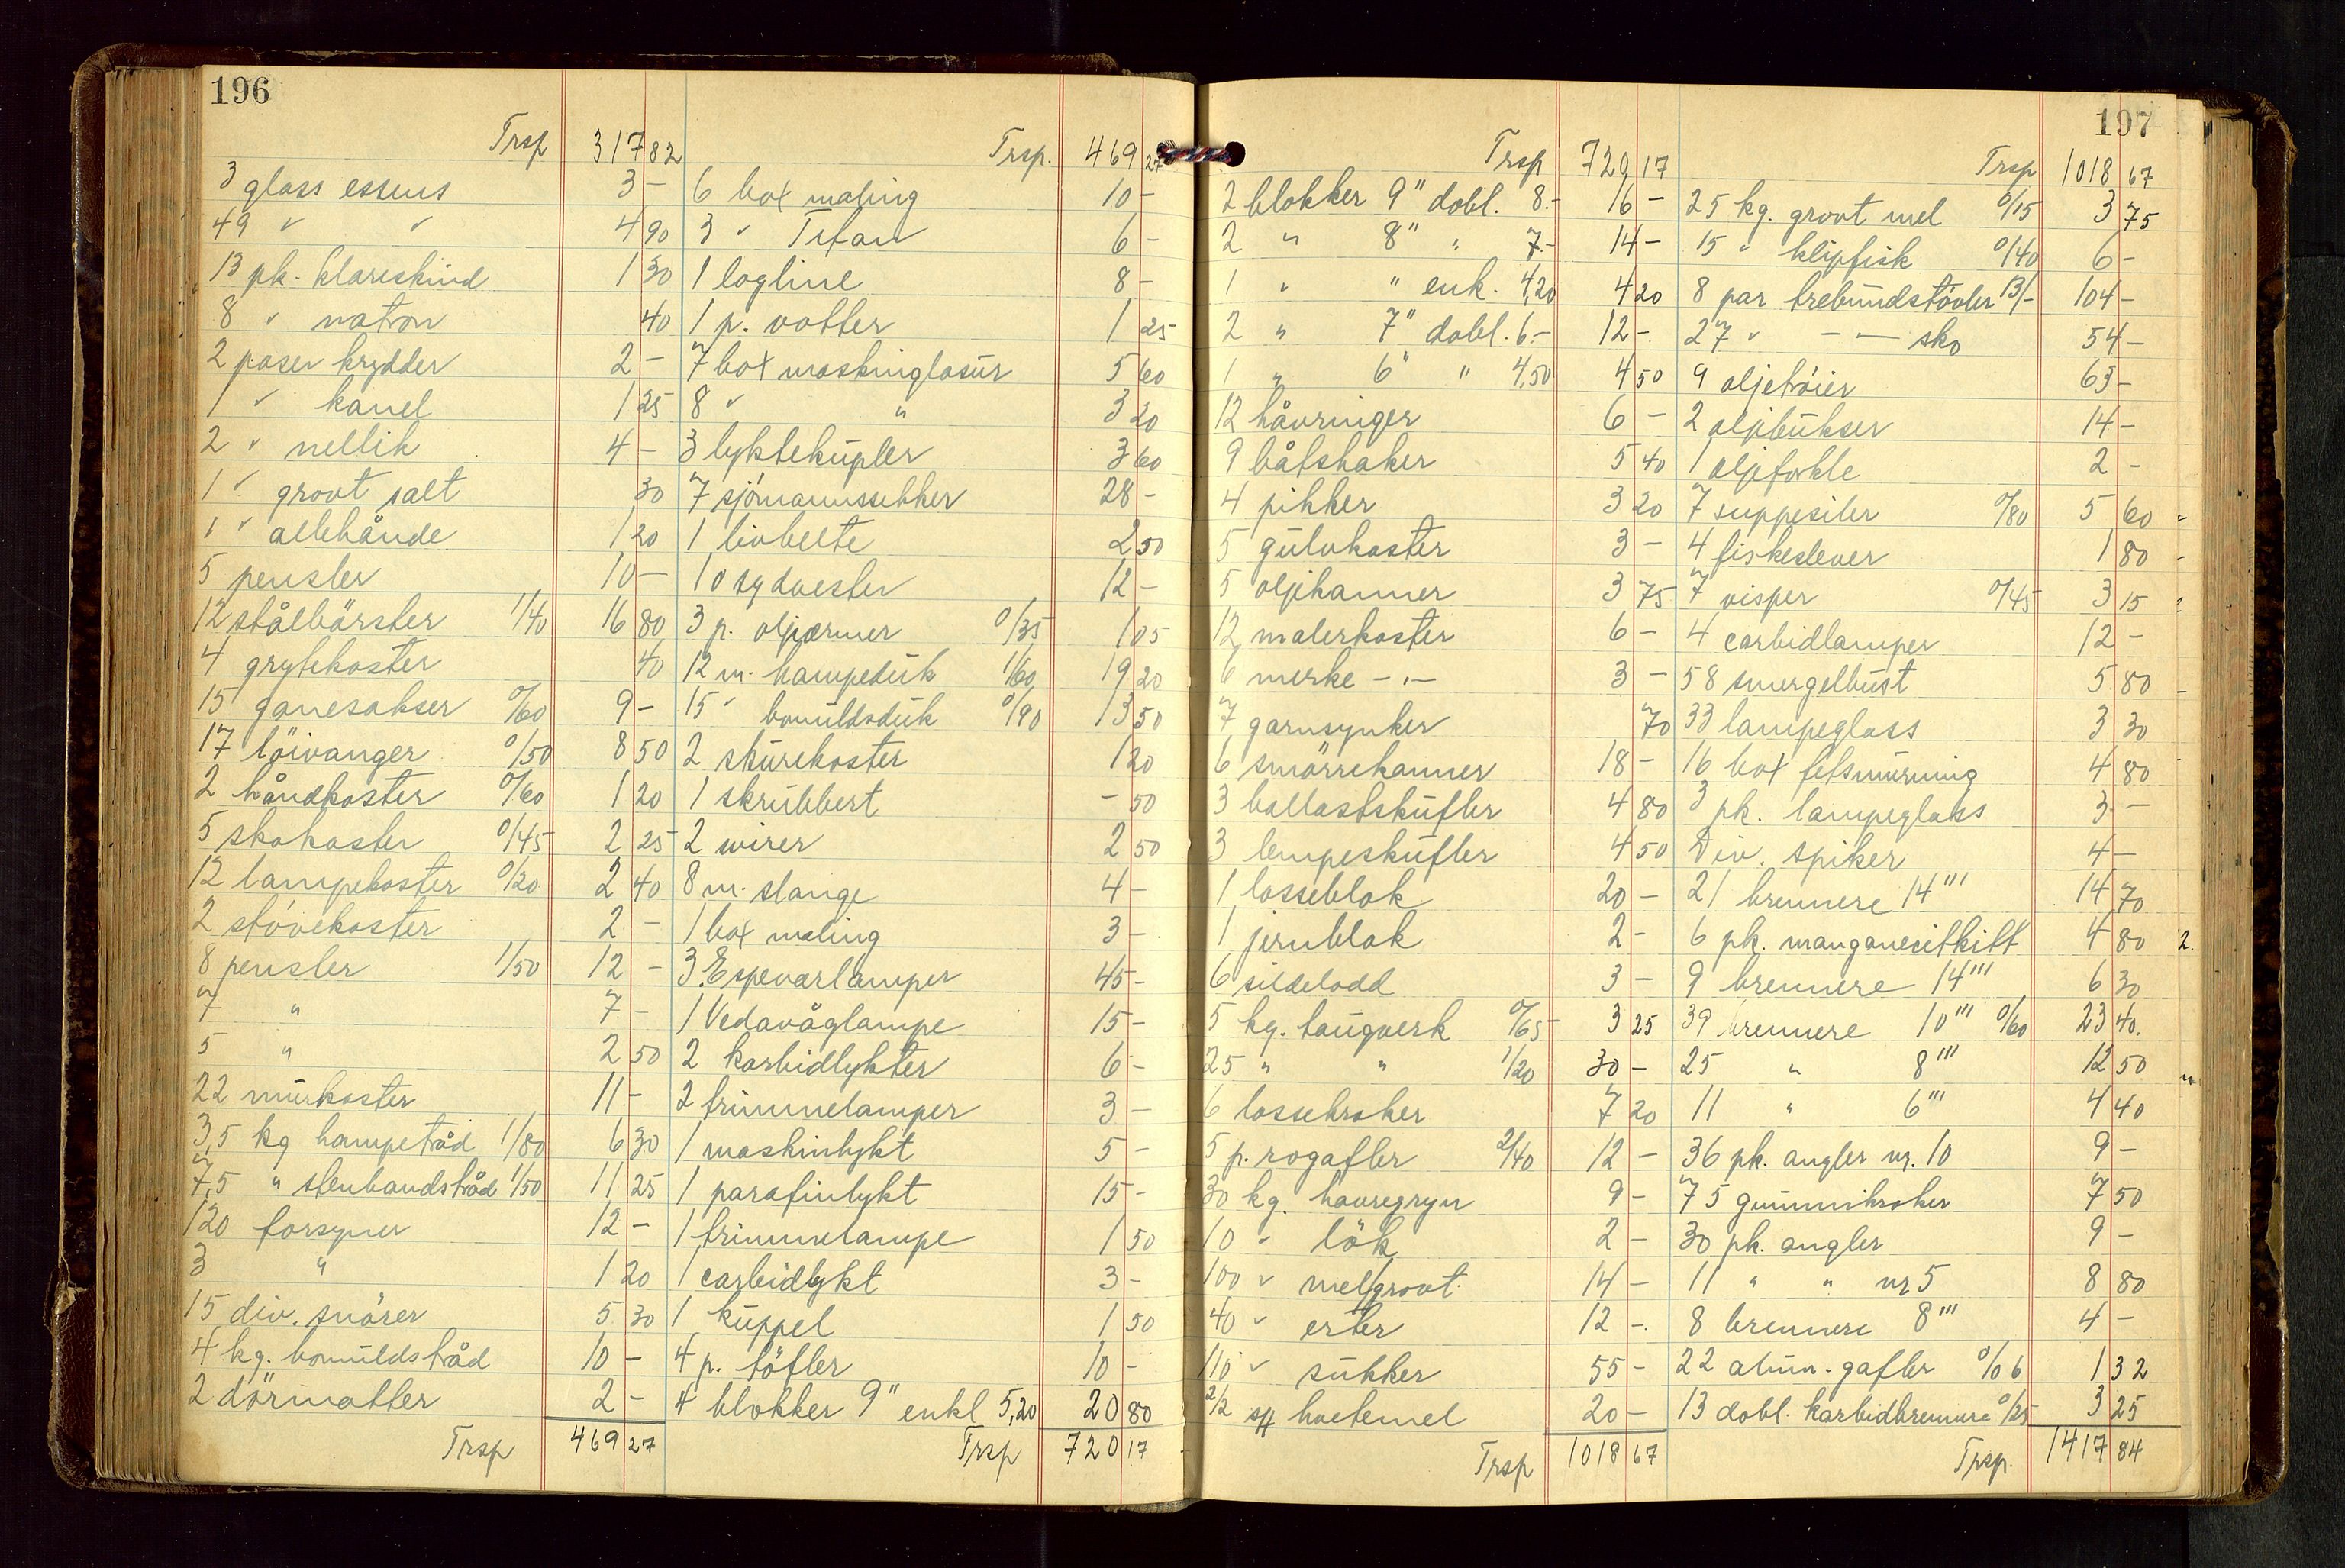 196
Trsp 317 82
3 glass essens 3 -
49 " " 4 90
13 pk. klareskind 1 30
8 " natron 40
2 poser krydder 2 -
1 " kanel 1 25
2 " nellik 4 -
1 " grovt salt 30
1 " allehånde 1 20
5 pensler 10 -
12 stålbörster 1/40 16 80
4 grytekoster 40
15 ganesakser 0/60 9 -
17 löivanger 0/50 8 50
2 håndkoster 0/60 1 20
5 skokoster 0/45 2 25
12 lampekoster 0/20 2 40
2 stövekoster 2 -
8 pensler 1/50 12 -
7 " 7 -
5 " 2 50
22 murkoster 11 -
3,5 kg hampetråd 1/80 6 30
7,5 " stenbandstråd 1/50 11 25
120 forsyner 12 -
3 " 1 20
15 div. snörer 5 30
4 kg. bomuldstråd 10 -
2 dörmatter 2 -
Trsp 469 27
Trsp. 469 27
6 box maling 10 -
3 " Titan 6 -
1 logline 8 -
1 p. votter 1 25
7 box maskinglasur 5 60
8 " " 3 20
3 lyktekupler 3 60
7 sjömannssekker 28 -
1 livbelte 2 50
10 sydvester 12 -
3 p. oljeermer 0/35 1 05
12 m. hampeduk 1/60 19 20
15 " bomuldsduk 0/90 13 50
2 skurekoster 1 20
1 skrubbert - 50
2 wirer 2 50
8 m. slange 4 -
1 box maling 3 -
3 Espevarlamper 45 -
1 Vedavåglampe 15 -
2 karbidlykter 6 -
2 trimmelamper 3 -
1 maskinlykt 5 -
1 parafinlykt 15 -
1 trimmelampe 1 50
1 carbidlykt 3 -
1 kuppel 1 50
4 p. töfler 10 -
4 blokker 9" enkl 5,20 20 80
Trsp 720 17
197
Trsp 720,17
2 blokker 9" dobl. 8.- 16 -
2 " 8" " 7.- 14 -
1 " " enk. 4,20 4 20
2 " 7" dobl. 6.- 12 -
1 " 6" " 4,50 4 50
12 håvringer 6 -
9 båtshaker 5 40
4 pikker 3 20
5 gulvkoster 3 -
5 oljekanner 3 75
12 malerkoster 6 -
6 merke -"- 3 -
7 garnsynker 70
6 smörrekanner 18 -
3 ballastskufler 4 80
3 lempeskufler 4 50
1 losseblok 20 -
1 jernblok 2 -
6 sildelodd 3 -
5 kg. taugverk 0/65 3 25
25 " " 1/20 30 -
6 lossekroker 7 20
5 p. rogafler 2/40 12 -
30 kg. havregryn 9 -
10 " lök 2 -
100 " mel grovt 14 -
40 " erter 12 -
110 " sukker 55 -
2/2 sk hvetemel 20 -
Trsp 1018 67
Trsp 1018 67
25 kg. grovt mel 0/15 3 75
15 " klipfisk 0/40 6 -
8 par trebundstövler 13/- 104 -
27 " -"- sko 54 -
9 oljetröier 63 -
2 oljebukser 14 -
1 oljeforkle 2 -
7 suppesiler 0/80 5 60
4 fiskeslever 1 80
7 visper 0/45 3 15
4 carbidlamper 12 -
58 smergelbust 5 80
33 lampeglass 3 30
16 box fetsmurning 4 80
3 pk. lampeglass 3 -
Div. spiker 4 -
21 brennere 14''' 14 70
6 pk. manganesitkitt 4 80 2.
9 brennere 14''' 6 30
39 brennere 10''' 0/60 23 40.
25 " 8''' 12 50
11 " 6''' 4 40
36 pk. angler nr. 10 9 -
75 gummikroker 7 50
30 pk. angler 9 -
11 " " nr 5 8 80
8 brennere 8''' 4 -
22 alum. gafler 0/06 1 32
13 dobl. karbidbrennere 0/25 3 25
Trsp. 1417 84